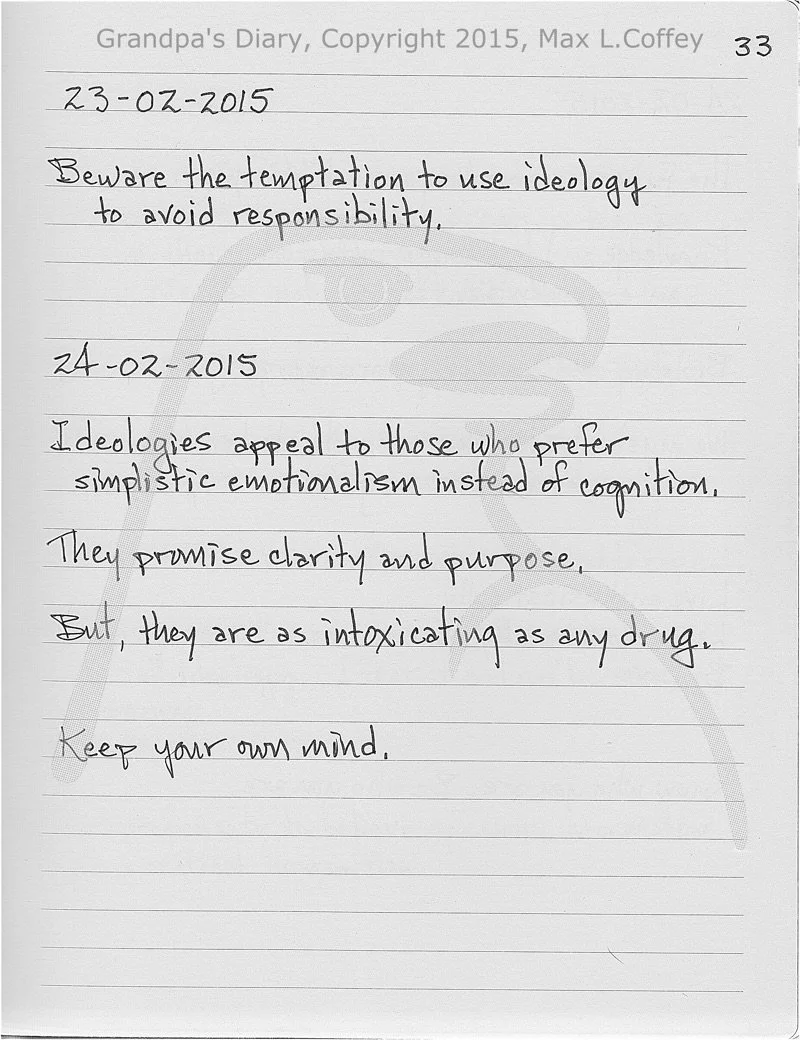 Grandpa's Diary, Copyright 2015, Max L.Coffey
33
23-02-2015
Beware the temptation to use ideology
to avoid responsibility.
24-02-2015
Ideologies appeal to those who prefer
simplistic emotionalism instead of cognition.
They promise clarity and purpose.
But, they are as intoxicating as any drug.
Keep your own mind.